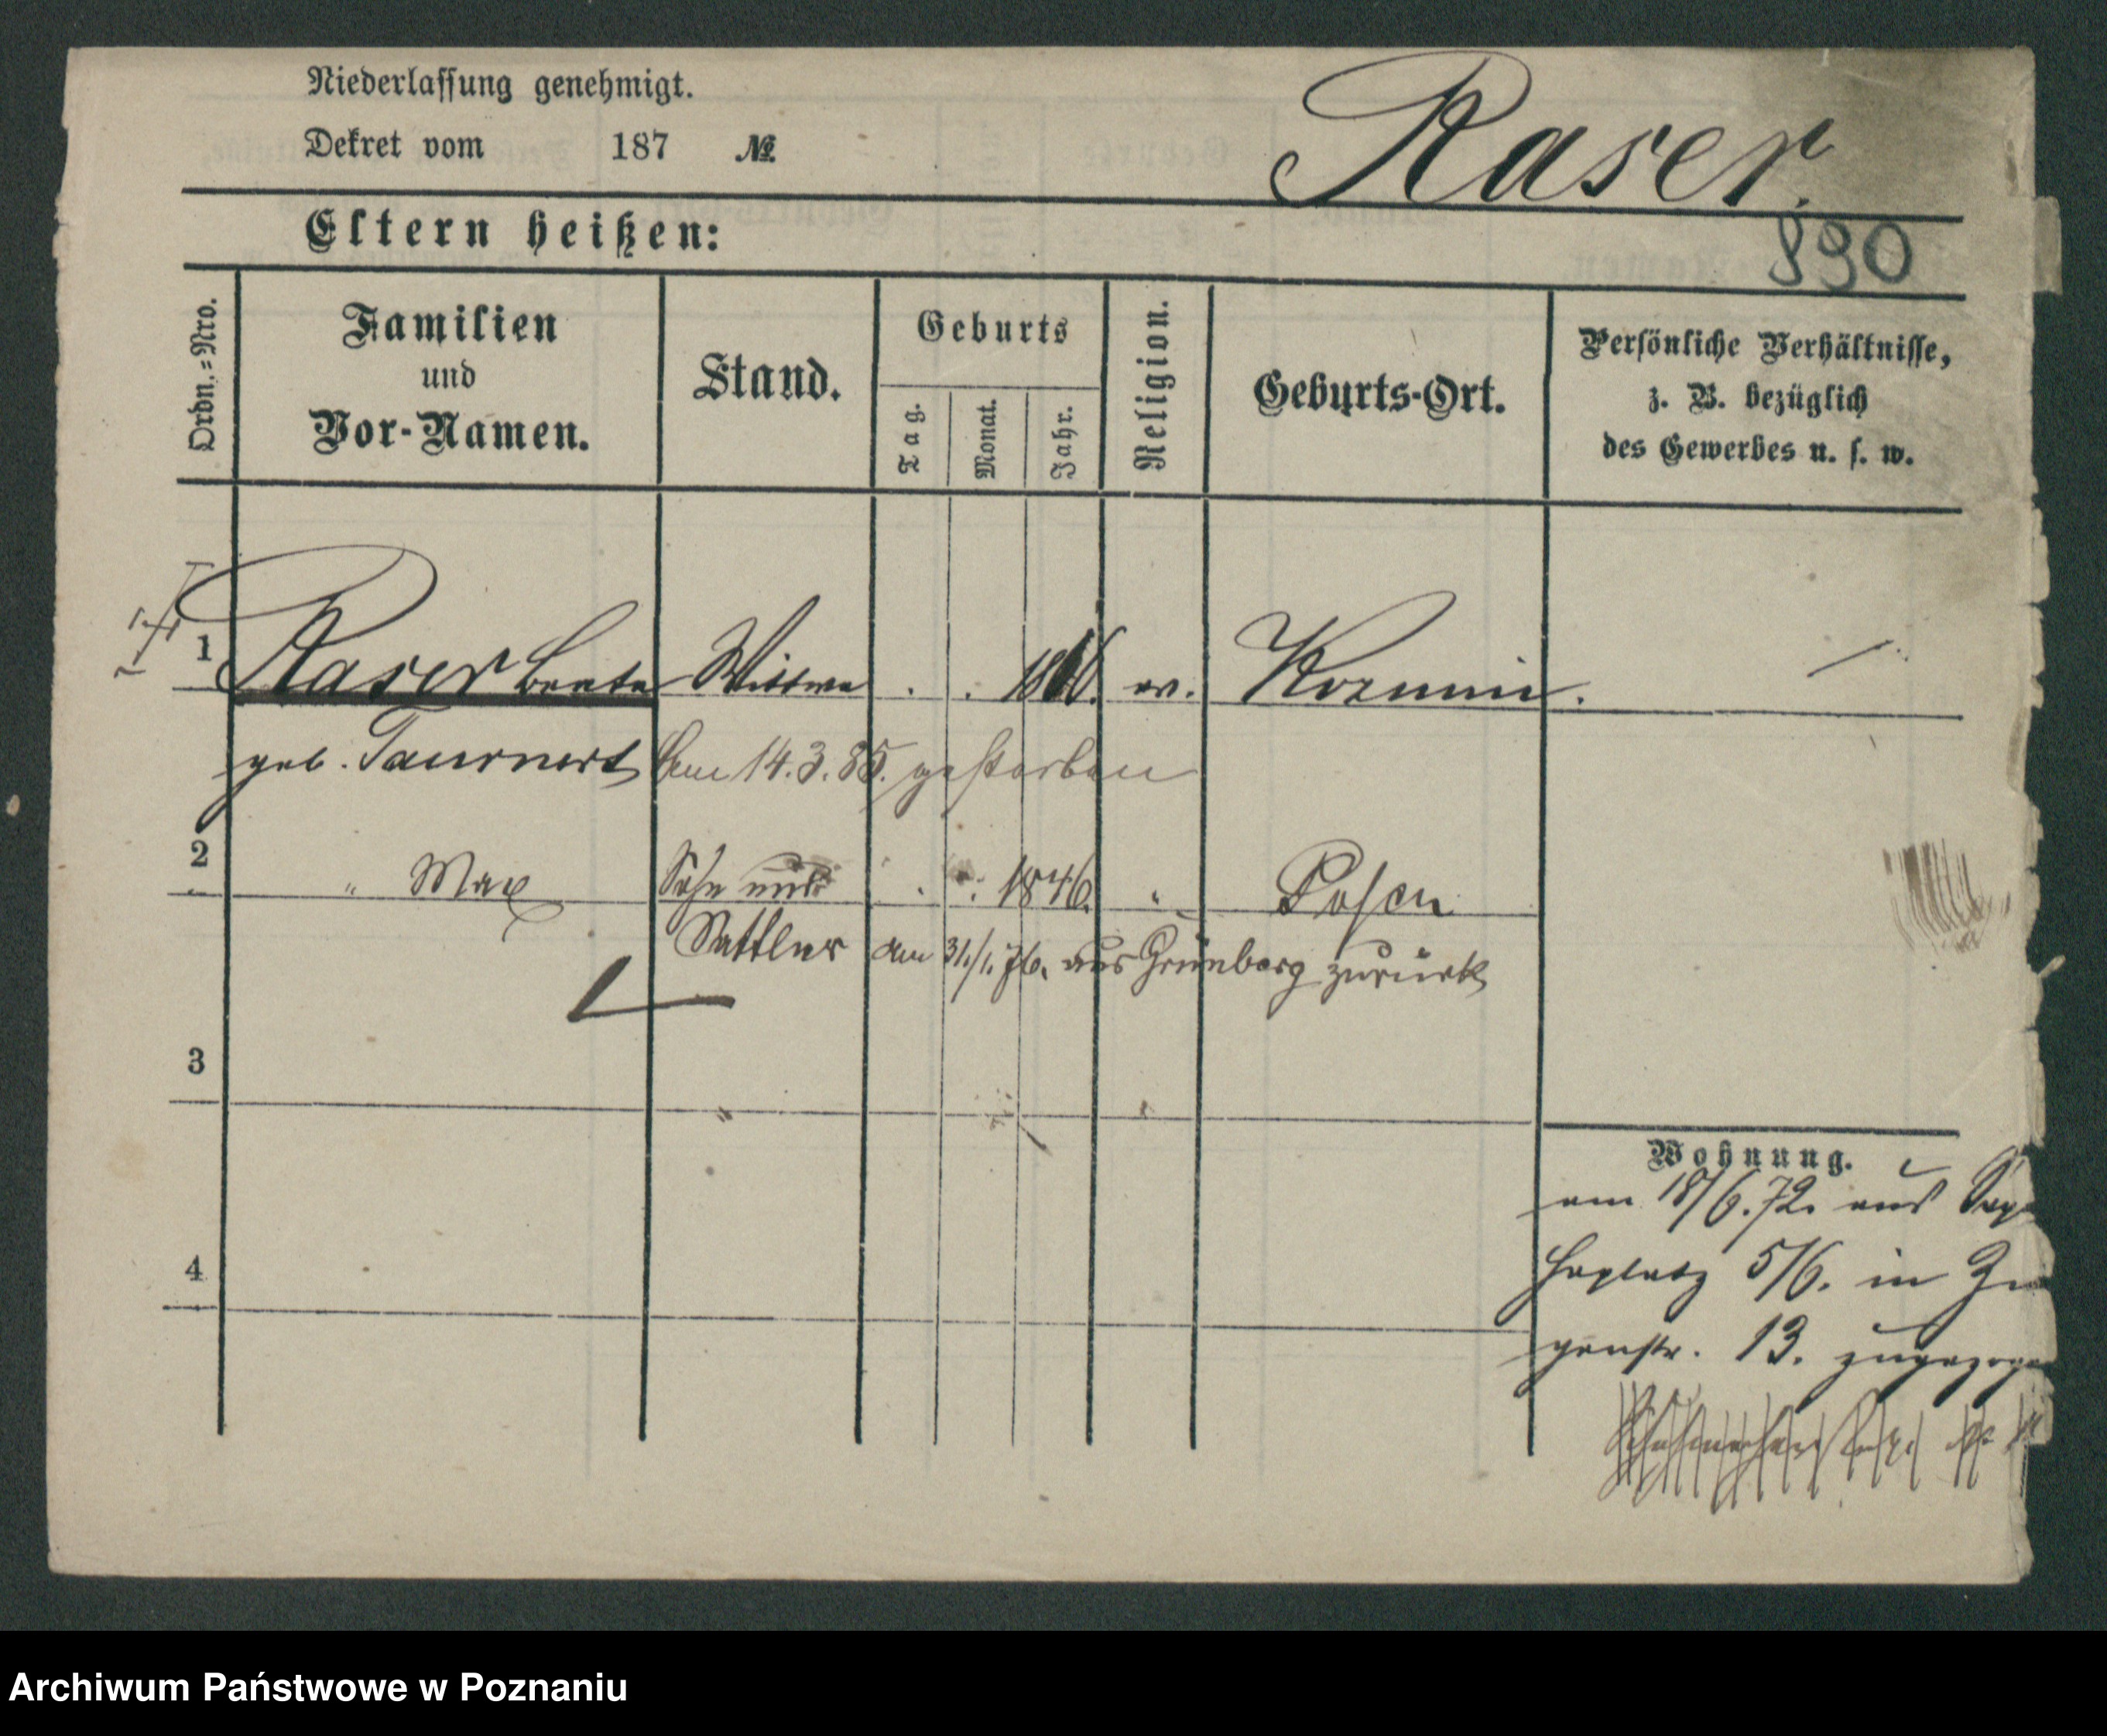 Niederlassung genehmigt.
Dekret vom 187 № Raser.
Eltern heißen:
890
Ordn.-Nro.
Familien
und
Vor-Namen.
Stand.
Geburts
Tag.
Monat.
Jahr.
Religion.
Geburts-Ort.
Persönliche Verhältnisse,
z. B. bezüglich
des Gewerbes u. s. w.
1 Raser Beate Wittwe . . ev. Kozmin.
geb. am 14.3.85. gestorben
2 " Max Sohn und . . 1846. " Posen
Sattler am 31./1.76. aus Grünberg zurück
3
4
Wohnung.
am 18/6.72. aus Sap
haplatz 5/6. in
genstr. 13. zugezoge
Archiwum Państwowe w Poznaniu